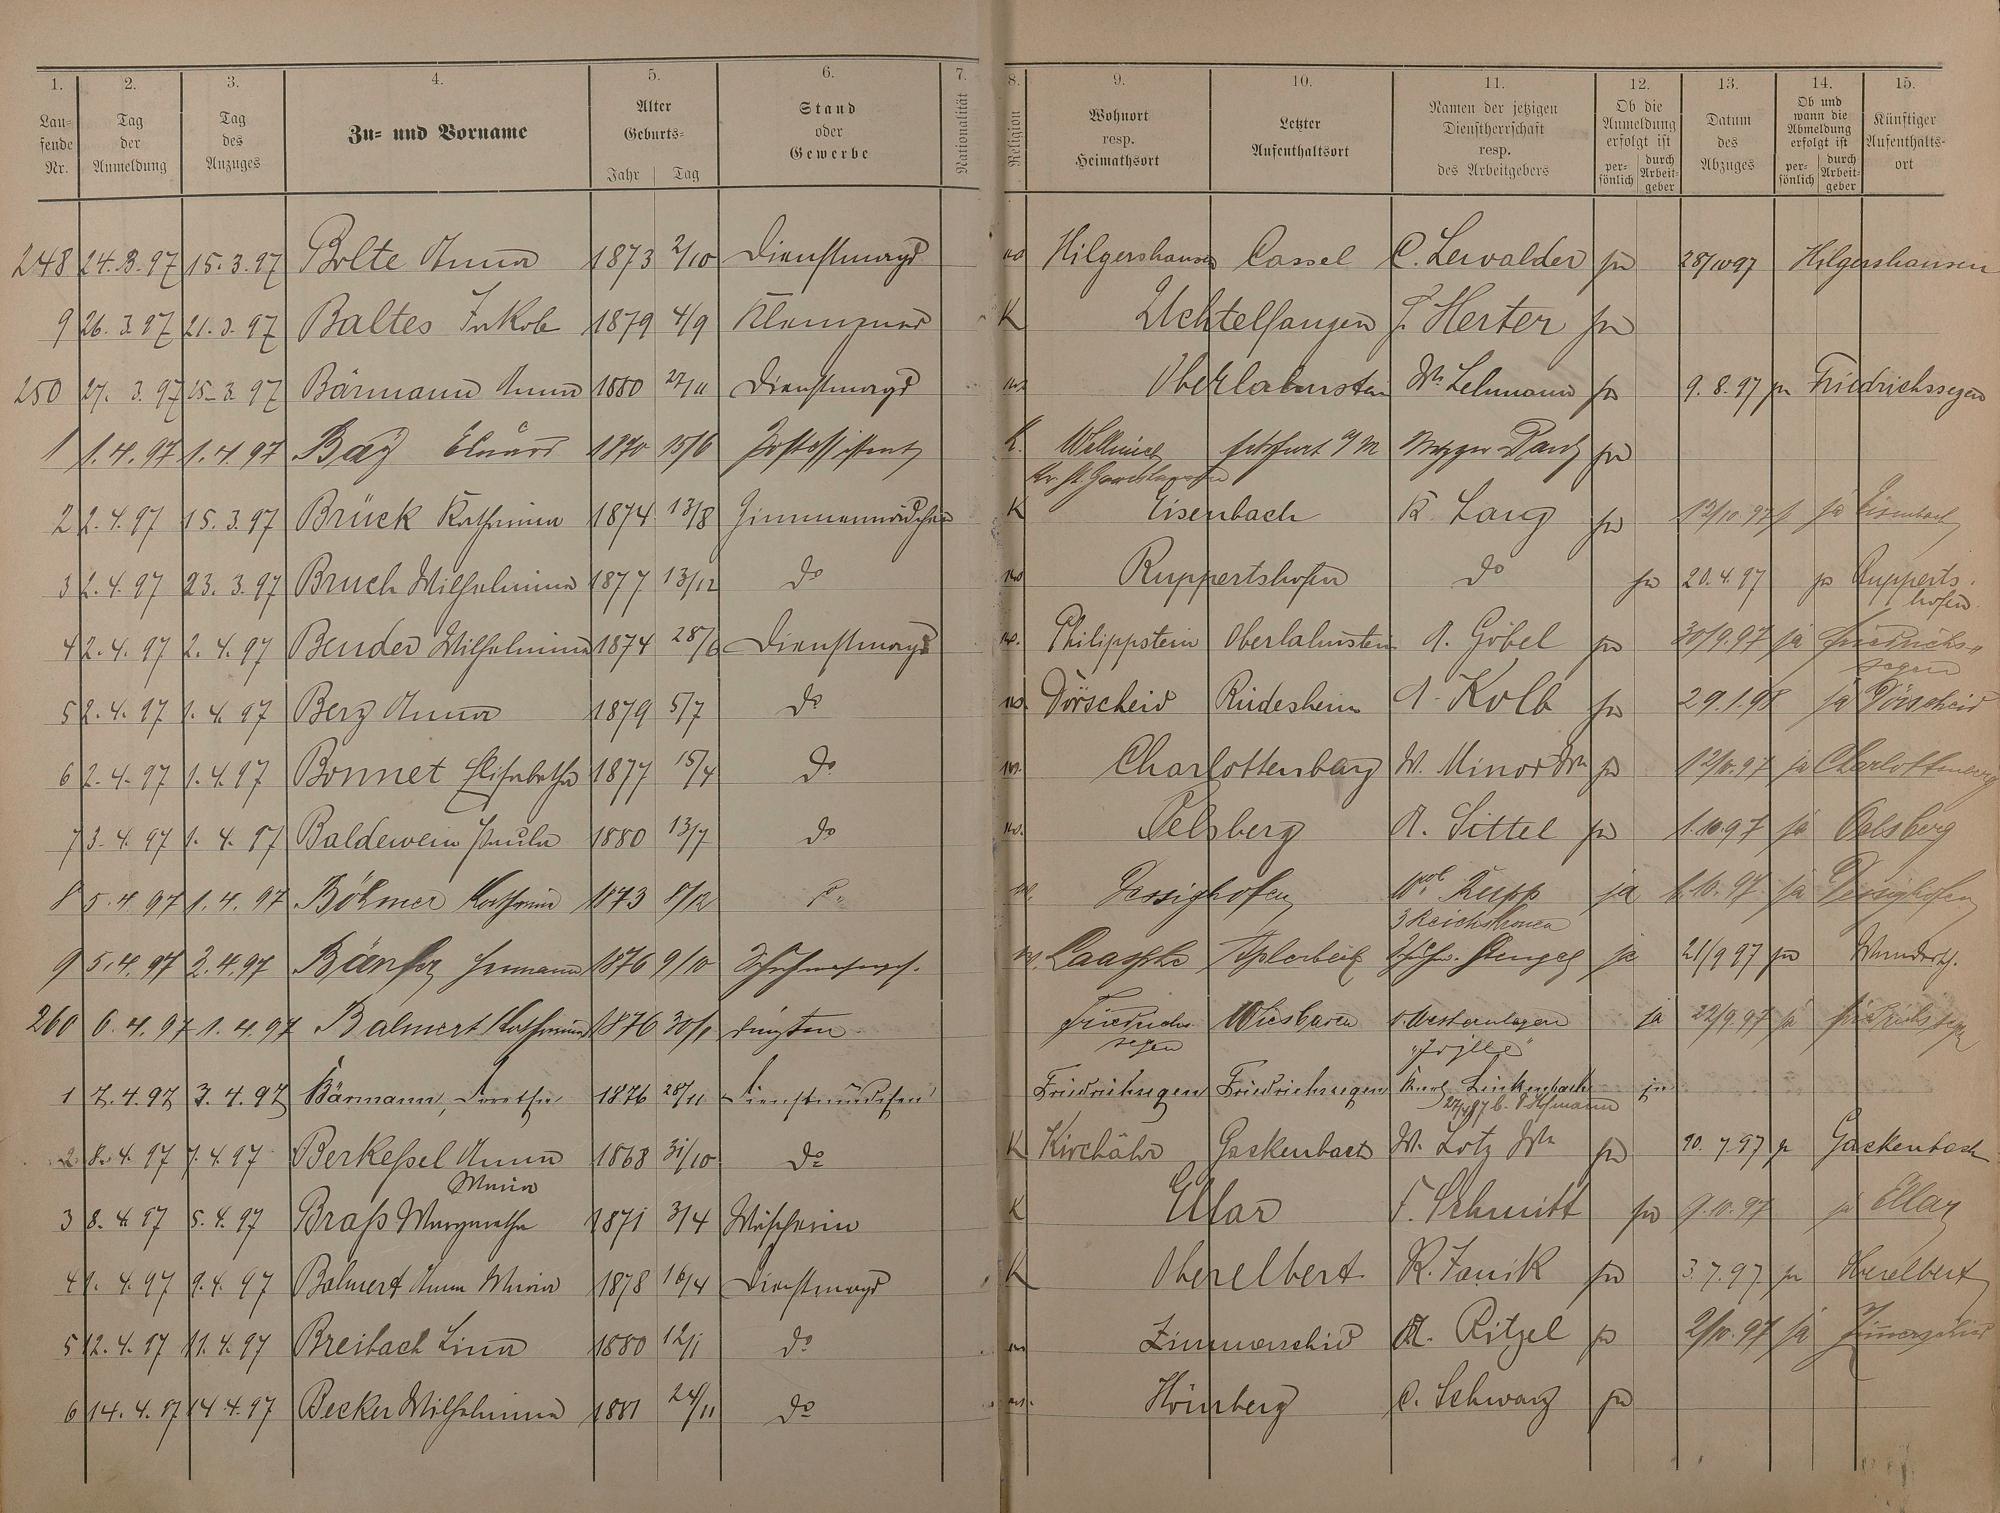 1. 2. 3. 4. 5. 6. 7. 8. 9. 10. 11. 12. 13. 14. 15.
Lau-
fende
Nr.
Tag
der
Anmeldung
Tag
des
Anzuges
Zu- und Vorname
Alter
Geburts-
Jahr Tag
Stand
oder
Gewerbe
Nationalität
Religion
Wohnort
resp.
Heimathsort
Letzter
Aufenthaltsort
Namen der jetzigen
Dienstherrschaft
resp.
des Arbeitgebers
Ob die
Anmeldung
erfolgt ist
per-
sönlich
durch
Arbeit-
geber
Datum
des
Abzuges
Ob und
wann die
Abmeldung
erfolgt ist
per-
sönlich
durch
Arbeit-
geber
Künftiger
Aufenthalts-
ort
248 24.3.97 15.3.97 Bolte Anna 1873 2/10 Dienstmagd Hilgershausen Cassel C. Lewalder ja 28/10 97 Hilgershausen
9 26.3.97 21.3.97 Baltes Jakob 1879 4/9 Klempner K Uchtelfangen F. Herter ja
250 27.3.97 15.3.97 Bärmann Anna 1880 27/11 Dienstmagd Oberlahnstein Wn Lehmann ja 9.8.97 ja Friedrichssegen
1 1.4.97 1.4.97 Bay Eduard 1870 15/6 Postassistent K. Wellmich Frkfurt a/M Metzger ja
Kr. St. Goarshausen
2 2.4.97 15.3.97 Brück Katharina 1874 13/8 Zimmermädchen K Eisenbach K. Lang ja 12/10.97 ja Eisenbach
3 2.4.97 23.3.97 Bruch Wilhelmina 1877 13/12 do Ruppertshofen do ja 20.4.97 ja Rupperts-
hofen
4 2.4.97 2.4.97 Bender Wilhelmina 1874 28/6 Dienstmagd Philippstein Oberlahnstein A. Göbel ja 30/9.97 ja Friedrichs-
segen
5 2.4.97 1.4.97 Berg Anna 1879 5/7 do Dörscheid Rüdesheim A. Kolb ja 29.1.98 ja Dörscheid
6 2.4.97 1.4.97 Bonnet Elisabetha 1877 15/4 do Charlottenberg W. Minor Wn ja 12/10.97 ja Charlottenberg
7 3.4.97 1.4.97 Baldewein Paula 1880 13/7 do Oelsberg A. Sittel ja 1.10.97 ja Oelsberg
8 5.4.97 1.4.97 Böhmer Katharina 1873 8/12 do Dessighofen Rupp ja 1.10.97 ja Dessighofen
3 Reichskronen
9 5.4.97 2.4.97 Hermann 1876 9/10 Laasphe Aplerbeck Stengel ja 21/9 97 ja
260 6.4.97 1.4.97 Balmert Katharina 1876 30/1 Friedrichs- Wiesbaden ja 22/9.97 ja Friedrichssegen
segen
1 7.4.97 3.4.97 Bärmann, Dorothea 1876 28/11 Dienstmädchen Friedrichsegen Friedrichsegen Karl Linkenbach ja
Hofmann
2 8.4.97 7.4.97 Berkeßel Anna 1868 31/10 do K Kirchähr Gackenbach W. Lotz Wn ja 10.7.97 ja Gackenbach
Maria
3 8.4.97 5.4.97 Braß Margaretha 1871 3/4 Wäscherin K Ellar F. Schmitt ja 9.10.97 ja Ellar
4 9.4.97 9.4.97 Balmert Anna Maria 1878 16/4 Dienstmagd K Oberelbert K. Janik ja 3.7.97 ja Oberelbert
5 12.4.97 11.4.97 Breibach Lina 1880 12/1 do Zimmerschid A. Ritzel ja 2/10.97 ja Zimmerschied
6 14.4.97 14.4.97 Becker Wilhelmina 1881 24/11 do Hömberg C. Schwarz ja